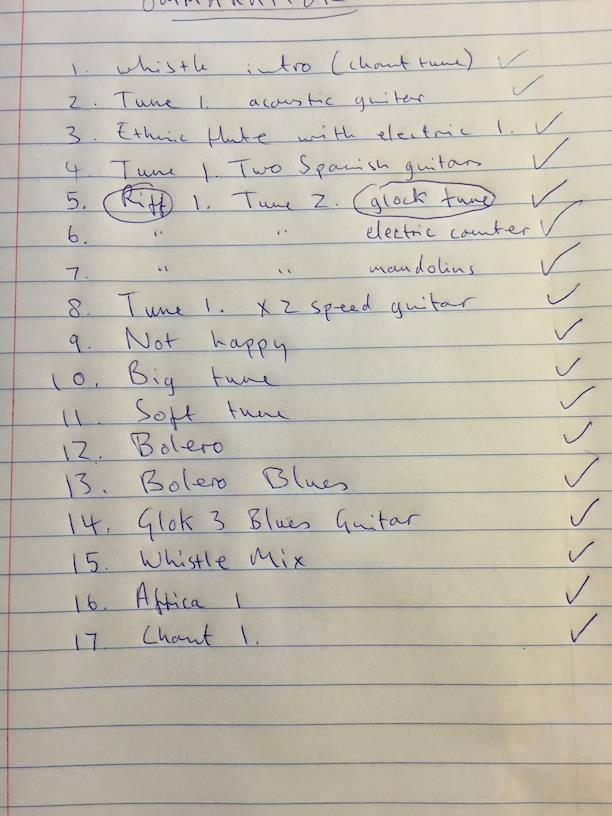 1. Whistle intro (chant tune) ✓
2. Tune 1. acoustic guitar ✓
3. Ethnic flute with electric 1. ✓
4. Tune 1. Two Spanish guitars ✓
5. Riff 1. Tune 2. glock tune ✓
6. " " electric counter ✓
7. " " mandolins ✓
8. Tune 1. x 2 speed guitar ✓
9. Not happy ✓
10. Big tune ✓
11. Soft tune ✓
12. Bolero ✓
13. Bolero Blues ✓
14. Glok 3 Blues Guitar ✓
15. Whistle Mix ✓
16. Africa 1 ✓
17. Chant 1. ✓